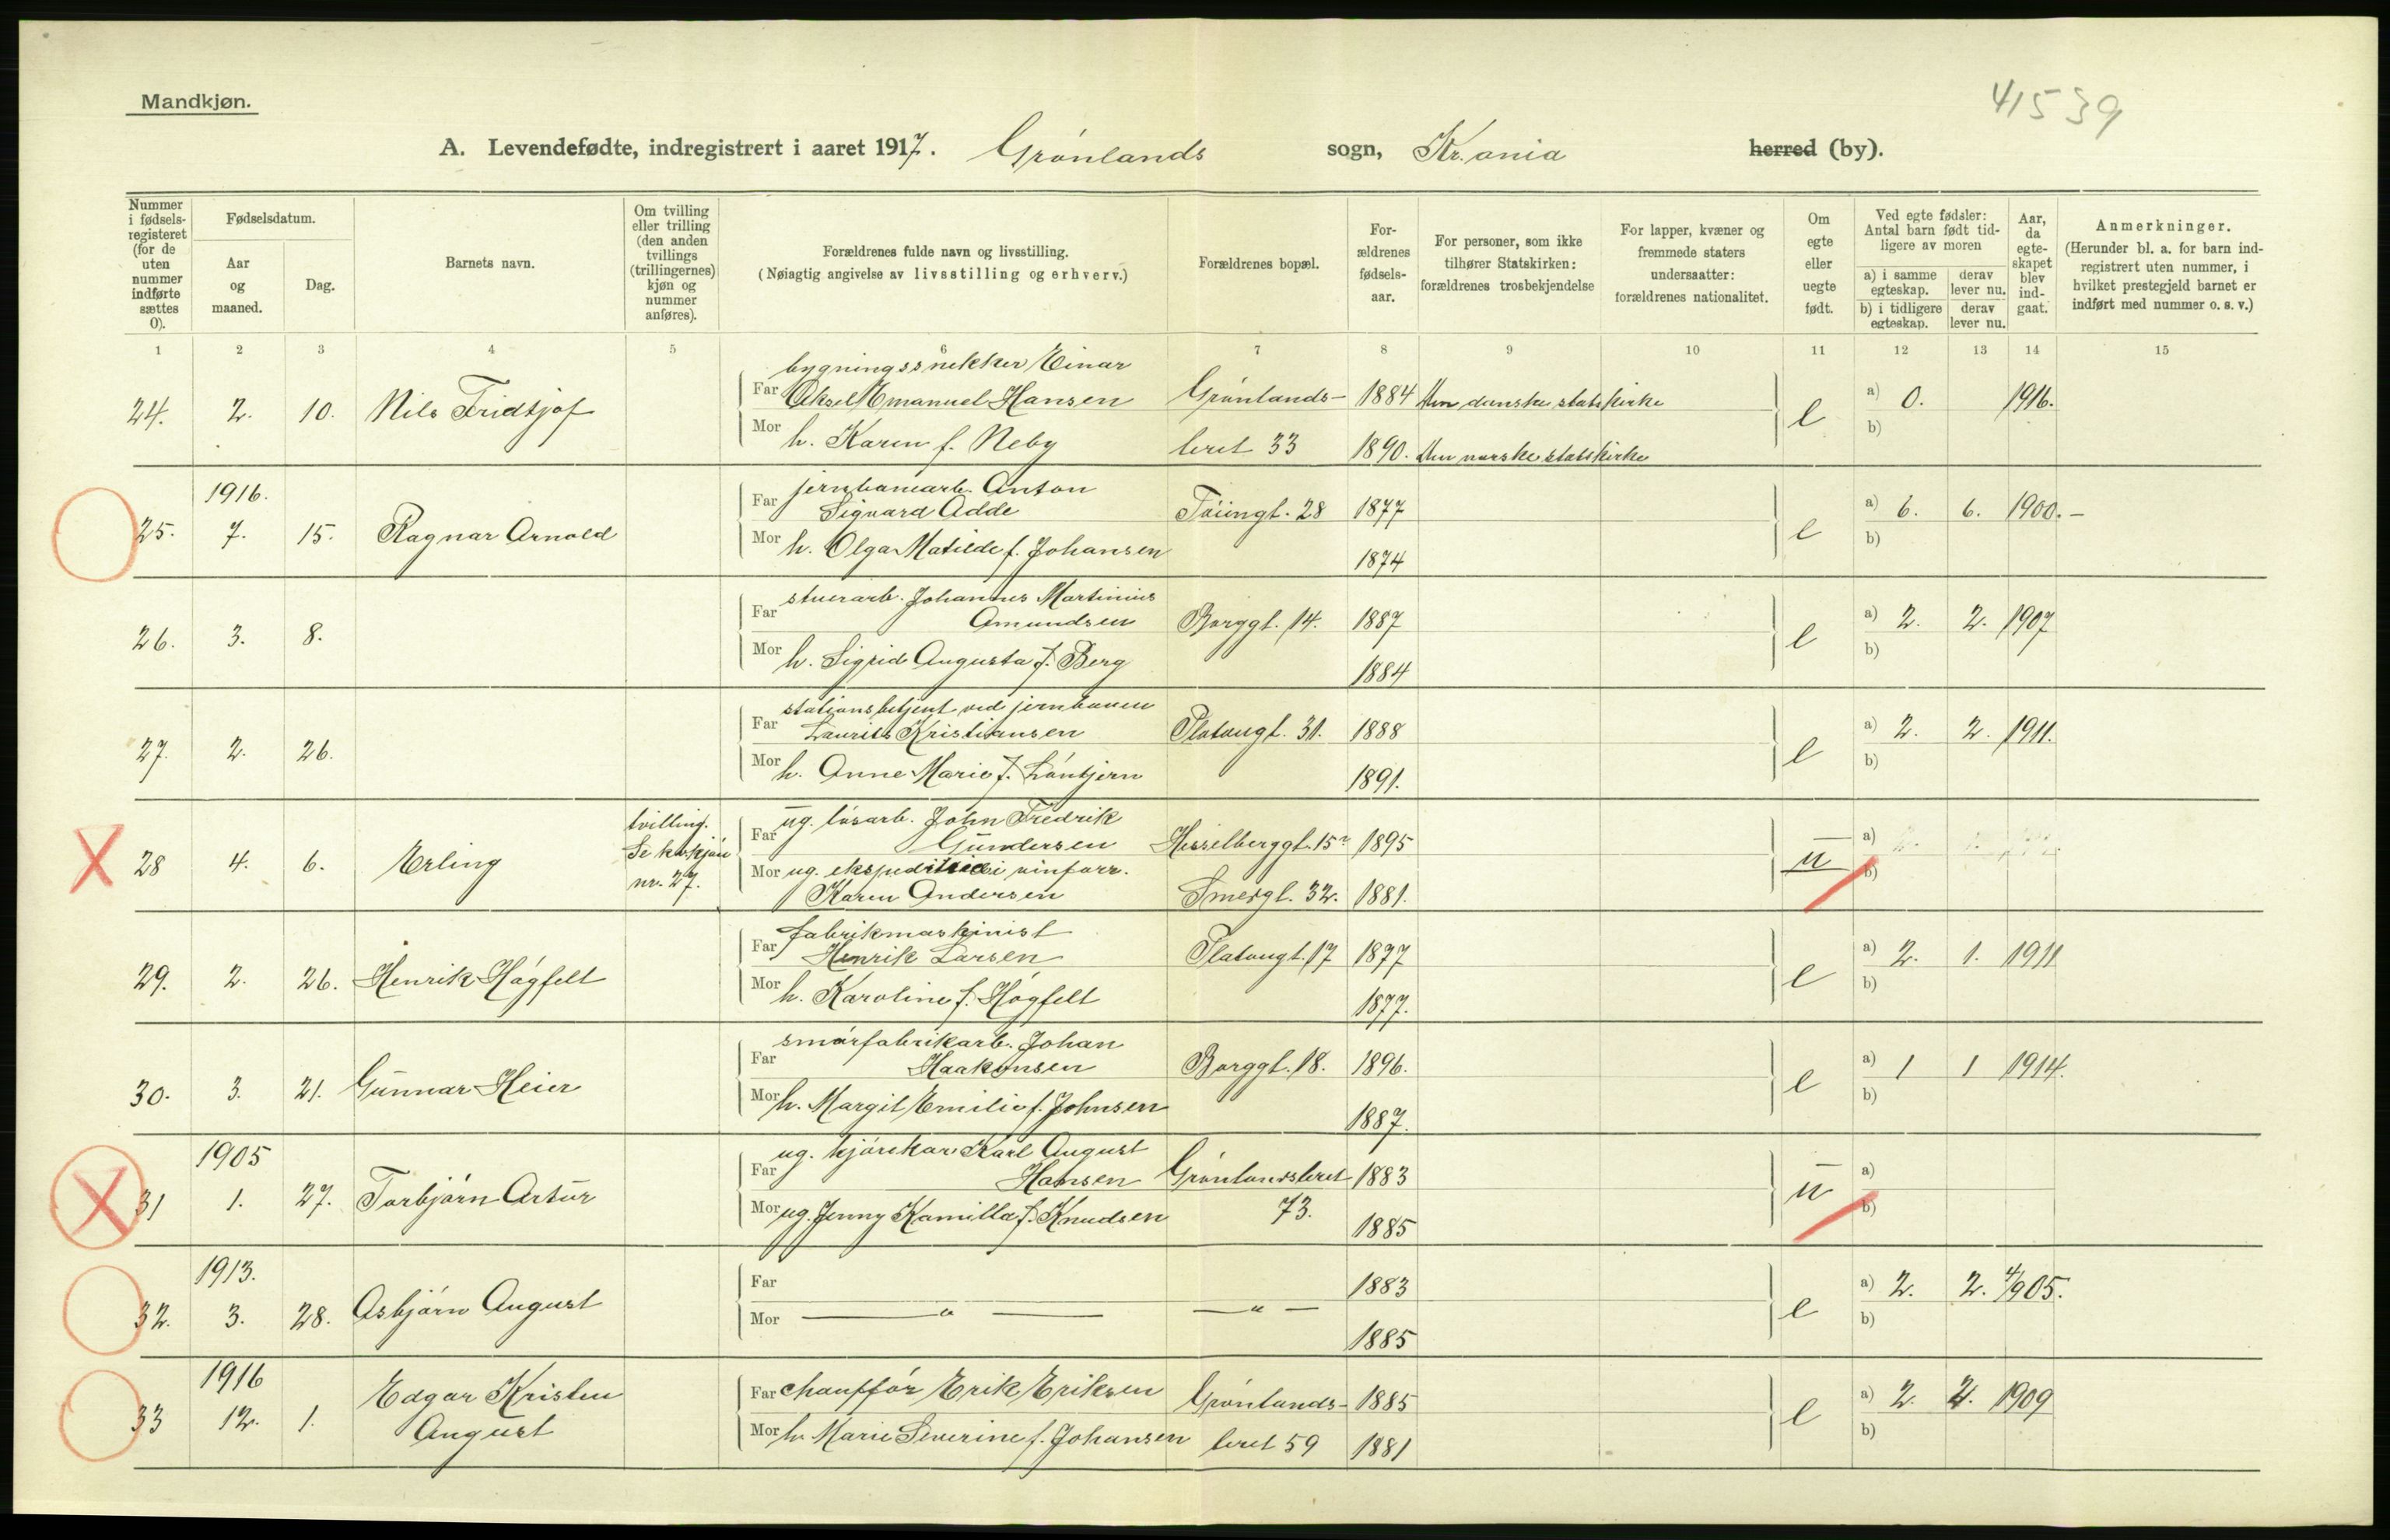 41539
Mandkjøn.
A. Levendefødte, indregistrert i aaret 1917. Grønlands sogn, Kr.ania herred (by).
Nummer i fødsels-registeret (for de uten nummer indførte sættes 0).
Fødselsdatum.
Aar og maaned.
Dag.
Barnets navn.
Om tvilling eller trilling (den anden tvillings (trillingernes) kjøn og nummer anføres).
Forældrenes fulde navn og livsstilling.
(Nøiagtig angivelse av livsstilling og erhverv.)
Forældrenes bopæl.
For-ældrenes fødsels-aar.
For personer, som ikke tilhører Statskirken: forældrenes trosbekjendelse
For lapper, kvæner og fremmede staters undersaatter: forældrenes nationalitet.
Om egte eller uegte født.
Ved egte fødsler: Antal barn født tid-ligere av moren
a) i samme egteskap. derav lever nu.
b) i tidligere egteskap. derav lever nu.
Aar, da egte-skapet blev ind-gaat.
Anmerkninger.
(Herunder bl. a. for barn ind-registrert uten nummer, i hvilket prestegjeld barnet er indført med nummer o. s. v.)
1 2 3 4 5 6 7 8 9 10 11 12 13 14 15
bygningssnekker Einar
24. 2. 10. Nils Fridtjof Far Aksel Emanuel Hansen Grønlands- 1884 Den danske statskirke e a) 0. 1916.
Mor h. Karen f. Neby leret 33 1890. Den norske statskirke b)
1916. jernbanearb. Anton
25. 7. 15. Ragnar Arnold Far Sigvard Adde Töiengt. 28 1877 e a) 6. 6. 1900.-
Mor h. Olga Matilde f. Johansen 1874 b)
stuerarb. Johannes Martinius
26. 3. 8. Far Amundsen Borggt. 14. 1887 e a) 2. 2. 1907
Mor h. Sigrid Augusta f. Berg 1884 b)
stationsbetjent ved jernbanen
27. 2. 26. Far Laurits Kristiansen Platougt. 31. 1888 e a) 2. 2. 1911.
Mor h. Anne Marie f. Löntjern 1891. b)
tvilling. ug. løsarb. John Fredrik
28 4. 6. Erling Se kvkjön nr. 27. Far Gundersen Hesselberggt. 15 1895 u a)
Mor ug. ekspeditrice i vinforr.
Karen Andersen Smedgt. 32. 1881. b)
fabrikmaskinist
29. 2. 26. Henrik Högfelt Far Henrik Larsen Platougt. 17 1877 e a) 2. 1. 1911
Mor h. Karoline f. Högfelt 1877. b)
smörfabrikarb. Johan
30. 3. 21. Gunnar Heier Far Haakonsen Borggt. 18. 1896. e a) 1 1 1914.
Mor h. Margit Emilie f. Johnsen 1887. b)
1905 ug. kjørekar Karl August
31 1. 27. Torbjörn Artur Far Hansen Grønlandsleret 1883 u a)
Mor ug. Jenny Kamilla f. Knudsen 73. 1885 b)
1913.
32. 3. 28. Asbjörn August Far 1883 e a) 2. 2. 4/1905.
Mor — " — — " — 1885 b)
1916
33 12. 1. Edgar Kristen Far chauffør Erik Eriksen Grønlands- 1885 e a) 2. 2. 1909
August Mor h. Marie Severine f. Johansen leret 59 1881 b)